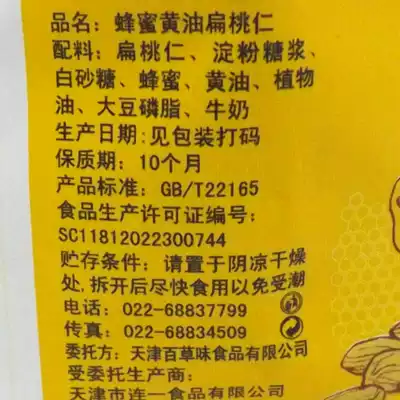 品名：蜂蜜黄油扁桃仁
配料：扁桃仁、淀粉糖浆、
白砂糖、蜂蜜、黄油、植物
油、大豆磷脂、牛奶
生产日期:见包装打码
保质期：10个月
产品标准：GB/T22165
食品生产许可证编号：
SC11812022300744
贮存条件：请置于阴凉干燥
处,拆开后尽快食用以免受潮
电话：022-68837799
传真：022-68834509
委托方：天津百草味食品有限公司
受委托生产商：
天津市连一食品有限公司